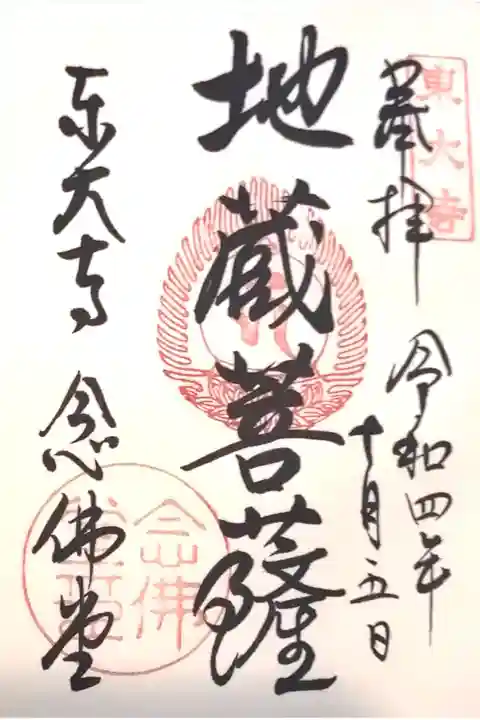 東大寺
奉拝
令和四年
十月五日
地蔵菩薩
东大寺 念佛堂
念佛